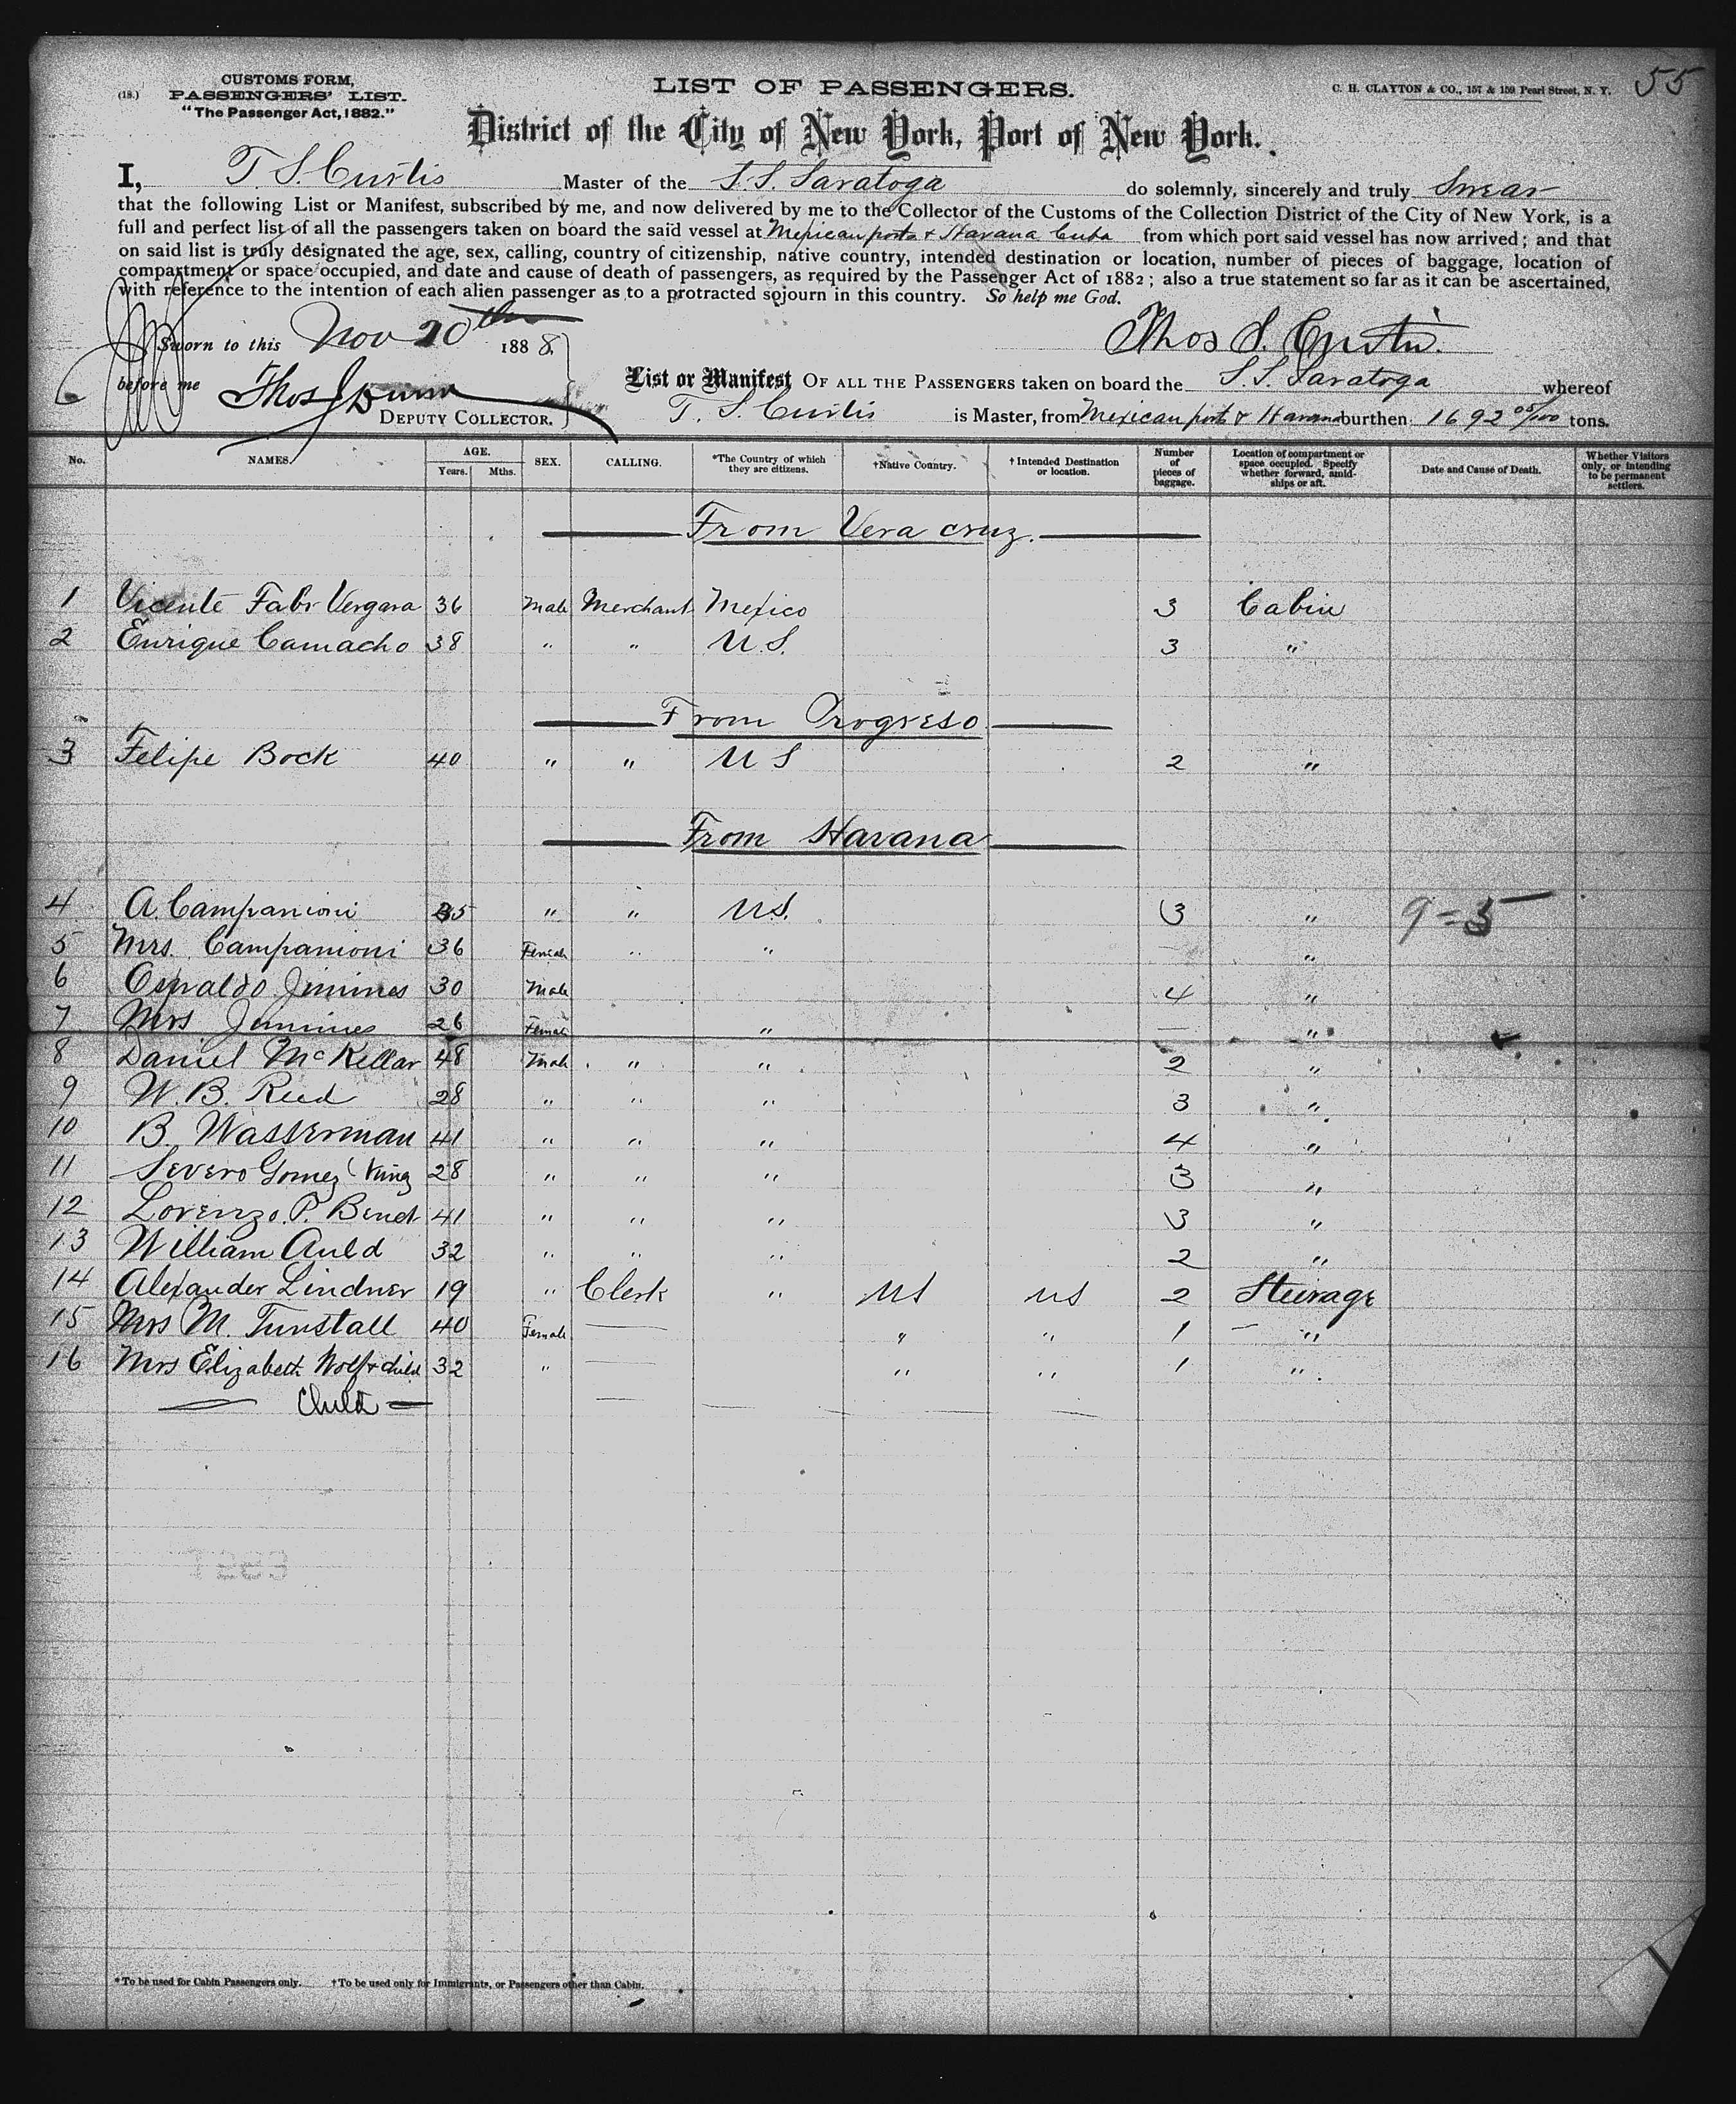 CUSTOMS FORM,
(18.) PASSENGERS' LIST.
"The Passenger Act, 1882."
LIST OF PASSENGERS.
C. H. CLAYTON & CO., 157 & 159 Pearl Street, N. Y.
55
District of the City of New York, Port of New York.
I, T. S. Curtis Master of the S.S. Saratoga do solemnly, sincerely and truly Swear
that the following List or Manifest, subscribed by me, and now delivered by me to the Collector of the Customs of the Collection District of the City of New York, is a
full and perfect list of all the passengers taken on board the said vessel at Mexican ports & Havana Cuba from which port said vessel has now arrived; and that
on said list is truly designated the age, sex, calling, country of citizenship, native country, intended destination or location, number of pieces of baggage, location of
compartment or space occupied, and date and cause of death of passengers, as required by the Passenger Act of 1882; also a true statement so far as it can be ascertained,
with reference to the intention of each alien passenger as to a protracted sojourn in this country. So help me God.
Sworn to this Nov 20th 1888
Thos S. Curtis.
before me Thos J Dunn
DEPUTY COLLECTOR.
List or Manifest OF ALL THE PASSENGERS taken on board the S.S. Saratoga whereof
T. S. Curtis is Master, from Mexican ports & Havana burthen 1692 05/100 tons.
No. NAMES. AGE. Years. Mths. SEX. CALLING. *The Country of which they are citizens. †Native Country. †Intended Destination or location. Number of pieces of baggage. Location of compartment or space occupied. Specify whether forward, amidships or aft. Date and Cause of Death. Whether Visitors only, or intending to be permanent settlers.
From Vera cruz.
1 Vicente Fabr Vergara 36 Male Merchant Mexico 3 Cabin
2 Enrique Camacho 38 " " U.S. 3 "
From Progreso
3 Felipe Bock 40 " " U S 2 "
From Havana
4 A. Campanioni 35 " " U.S. 3 " 9=5
5 Mrs. Campanioni 36 Female " " "
6 Osvaldo Jimines 30 Male 4 "
7 Mrs Jimines 26 Female " — "
8 Daniel McKellar 48 Male " " 2 "
9 W. B. Reed 28 " " " 3 "
10 B. Wasserman 41 " " " 4 "
11 Severo Gomez 28 " " " 3 "
12 Lorenzo P. 41 " " " 3 "
13 William Auld 32 " " " 2 "
14 Alexander Lindner 19 " Clerk " US US 2 Steerage
15 Mrs M. Tunstall 40 Female — " " 1 — "
16 Mrs Elizabeth Wolf & child 32 " — " " 1 "
— Child —
*To be used for Cabin Passengers only. †To be used only for Immigrants, or Passengers other than Cabin.